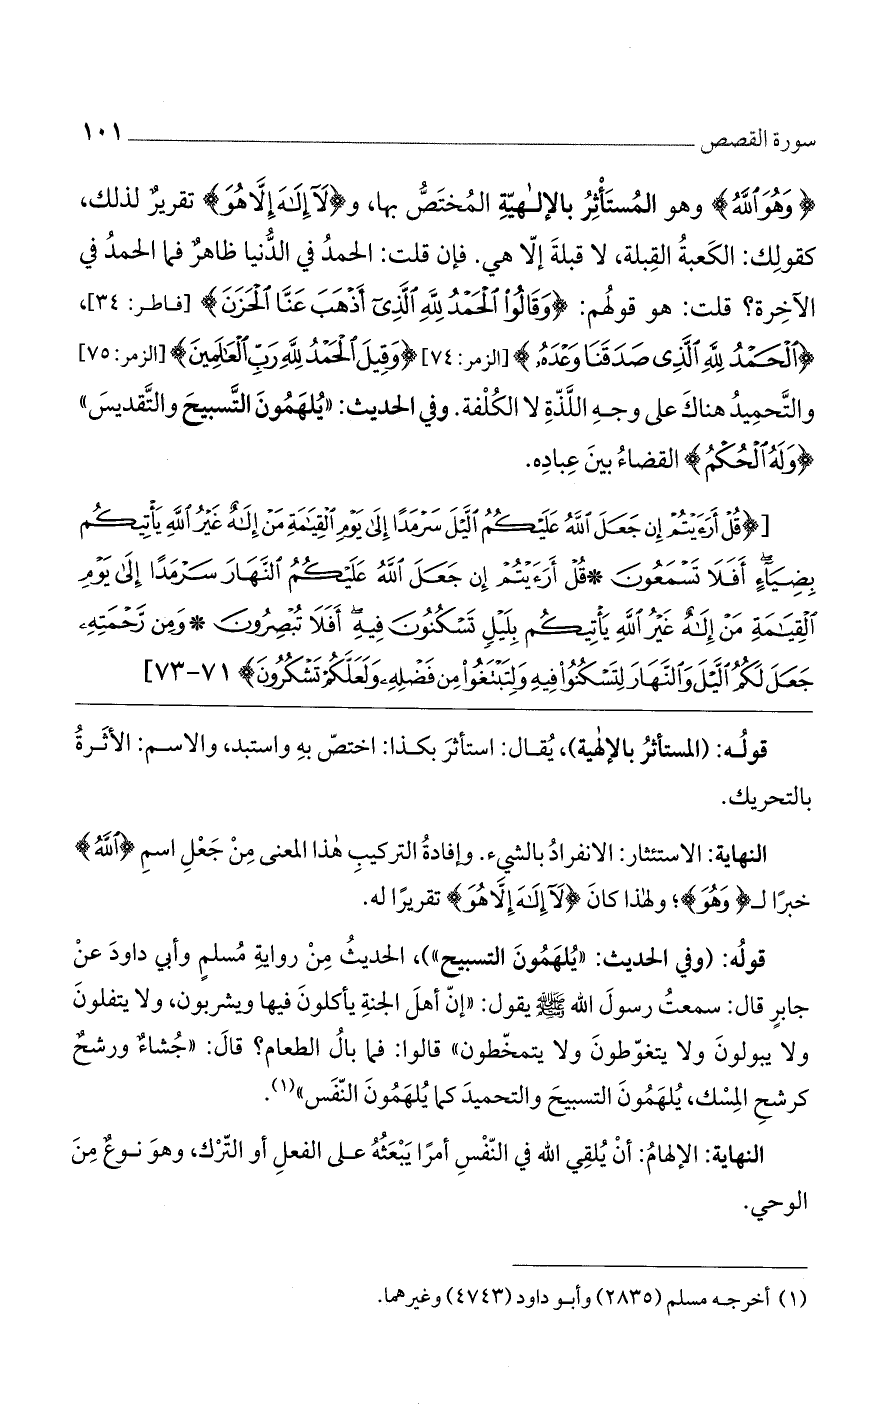 سورة القصص ١٠١
﴿وَهُوَ ٱللَّهُ﴾ وهو المُستَأْثِرُ بالإلـٰهيّةِ المُختَصُّ بها، و﴿لَآ إِلَـٰهَ إِلَّا هُوَ﴾ تقريرٌ لذلك،
كقولِك: الكَعبةُ القِبلة، لا قبلةَ إلّا هي. فإن قلت: الحمدُ في الدُّنيا ظاهرٌ فما الحمدُ في
الآخِرة؟ قلت: هو قولُهم: ﴿وَقَالُوا۟ ٱلْحَمْدُ لِلَّهِ ٱلَّذِىٓ أَذْهَبَ عَنَّا ٱلْحَزَنَ﴾ [فـاطـر: ٣٤]،
﴿ٱلْحَـمْدُ لِلَّهِ ٱلَّذِى صَدَقَنَا وَعْدَهُۥ﴾ [الزمر: ٧٤] ﴿وَقِيلَ ٱلْحَمْدُ لِلَّهِ رَبِّ ٱلْعَـٰلَمِينَ﴾ [الزمر: ٧٥]
والتَّحميدُ هناكَ على وجـهِ اللَّذّةِ لا الكُلْفة. وفي الحديث: «يُلهَمُونَ التَّسبيحَ والتَّقديسَ»
﴿وَلَهُ ٱلْحُكْمُ﴾ القضاءُ بينَ عِبادِه.
[﴿قُلْ أَرَءَيْتُمْ إِن جَعَلَ ٱللَّهُ عَلَيْكُمُ ٱلَّيْلَ سَرْمَدًا إِلَىٰ يَوْمِ ٱلْقِيَـٰمَةِ مَنْ إِلَـٰهٌ غَيْرُ ٱللَّهِ يَأْتِيكُم
بِضِيَآءٍ أَفَلَا تَسْمَعُونَ * قُلْ أَرَءَيْتُمْ إِن جَعَلَ ٱللَّهُ عَلَيْكُمُ ٱلنَّهَارَ سَرْمَدًا إِلَىٰ يَوْمِ
ٱلْقِيَـٰمَةِ مَنْ إِلَـٰهٌ غَيْرُ ٱللَّهِ يَأْتِيكُم بِلَيْلٍ تَسْكُنُونَ فِيهِ أَفَلَا تُبْصِرُونَ * وَمِن رَّحْمَتِهِۦ
جَعَلَ لَكُمُ ٱلَّيْلَ وَٱلنَّهَارَ لِتَسْكُنُوا۟ فِيهِ وَلِتَبْتَغُوا۟ مِن فَضْلِهِۦ وَلَعَلَّكُمْ تَشْكُرُونَ﴾ ٧١-٧٣]
قولُـه: (المستأثرُ بالإلٰهية)، يُقـال: استأثرَ بكـذا: اختصّ بهِ واستبد، والاسم: الأثَـرةُ
بالتحريك.
النهاية: الاستئثار: الانفرادُ بالشيء. وإفادةُ التركيبِ هٰذا المعنى مِنْ جَعْلِ اسمِ ﴿ٱللَّهُ﴾
خبرًا لـ﴿وَهُوَ﴾؛ ولهٰذا كانَ ﴿لَآ إِلَـٰهَ إِلَّا هُوَ﴾ تقريرًا له.
قولُه: (وفي الحديث: «يُلهَمُونَ التسبيح»)، الحديثُ مِنْ روايةِ مُسلمٍ وأبي داودَ عنْ
جابرٍ قال: سمعتُ رسولَ الله ﷺ يقول: «إنّ أهلَ الجنةِ يأكلونَ فيها ويشربون، ولا يتفلونَ
ولا يبولونَ ولا يتغوّطونَ ولا يتمخّطون» قالوا: فما بالُ الطعام؟ قالَ: «جُشاءٌ ورشحٌ
كرشحِ المِسْك، يُلهَمُونَ التسبيحَ والتحميدَ كما يُلهَمُونَ النّفَس»(١).
النهاية: الإلهامُ: أنْ يُلقِي الله في النّفْسِ أمرًا يَبْعَثُهُ عـلى الفعلِ أو التّرْك، وهوَ نـوعٌ مِنَ
الوحي.
(١) أخرجـه مسلم (٢٨٣٥) وأبـو داود (٤٧٤٣) وغيرهما.